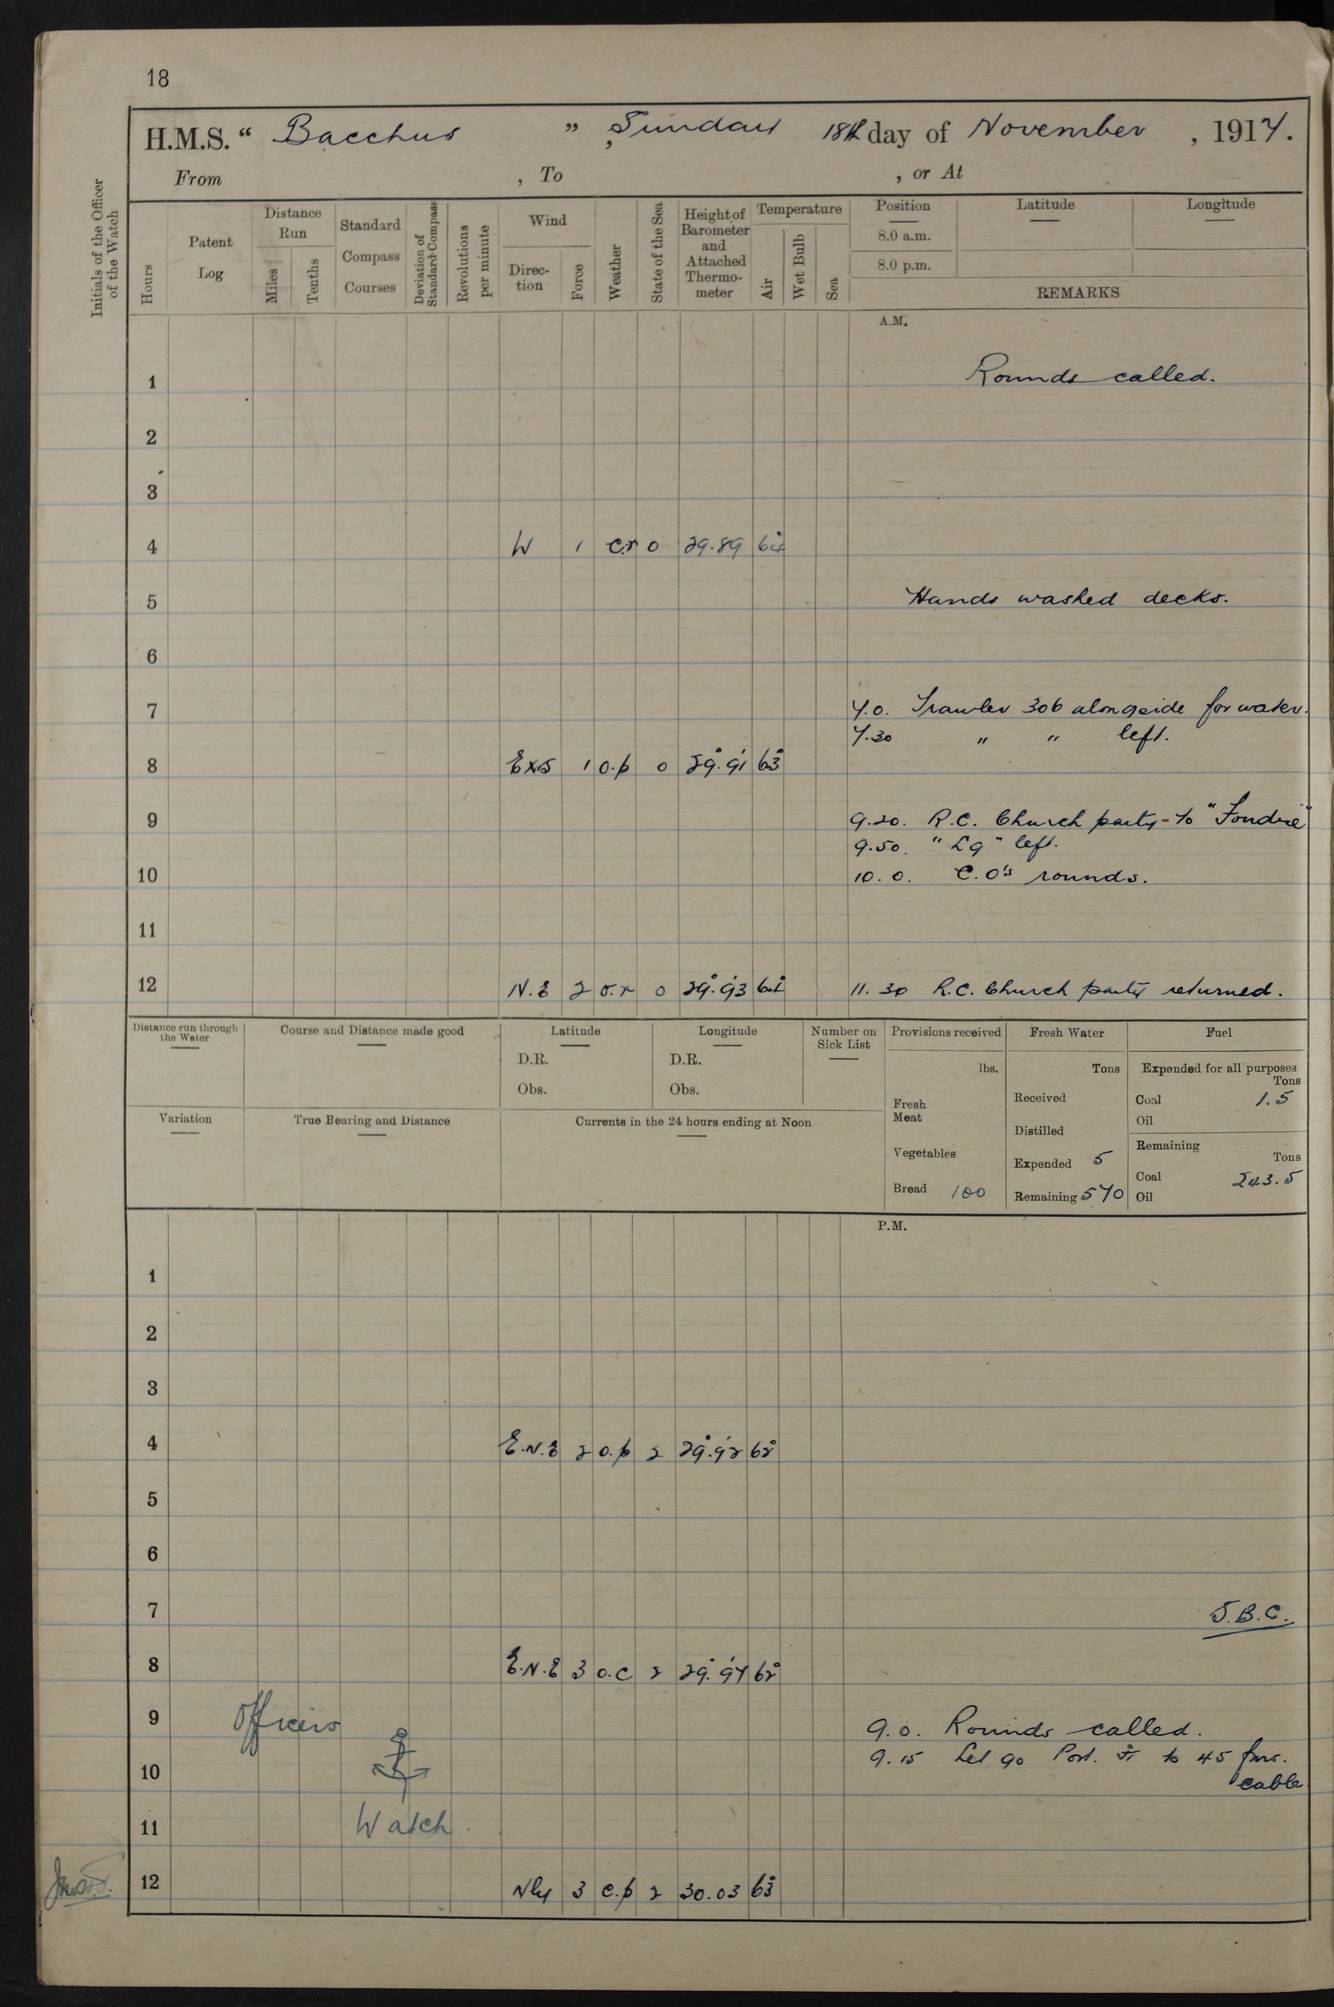 18
H.M.S. “ Bacchus ”, Sunday 18th day of November , 1917.
From , To , or At
Initials of the Officer of the Watch
Hours
Patent Log
Distance Run
Miles
Tenths
Standard Compass Courses
Deviation of Standard Compass
Revolutions per minute
Wind
Direction
Force
Weather
State of the Sea
Height of Barometer and Attached Thermometer
Temperature
Air
Wet Bulb
Sea
Position
8.0 a.m.
8.0 p.m.
Latitude
Longitude
REMARKS
A.M.
1 Rounds called.
2
3
4 W 1 c.r 0 29.89
5 Hands washed decks.
6
7 7.0. Trawler 306 alongside for water.
7.30 " " left.
8 ExS 1 o.p 0 29.91 63
9 9.20. R.C. Church party to "Foudre"
9.50. "L9" left.
10 10.0. C.O's rounds.
11
12 N.E 2 o.r 0 29.93 11.30 R.C. Church party returned.
Distance run through the Water
Course and Distance made good
Latitude
D.R.
Obs.
Longitude
D.R.
Obs.
Number on Sick List
Provisions received
lbs.
Fresh Meat
Vegetables
Bread 100
Fresh Water
Tons
Received
Distilled
Expended 5
Remaining 570
Fuel
Expended for all purposes
Tons
Coal 1.5
Oil
Remaining
Tons
Coal 243.5
Oil
Variation
True Bearing and Distance
Currents in the 24 hours ending at Noon
P.M.
1
2
3
4 E.N.E 2 o.p 2 29.92 62
5
6
7 J.B.C.
8 E.N.E 3 o.c 2 29.97 62
9 Officers 9.0. Rounds called.
9.15 Let go Port. Ar to 45 fms.
cable
10
11 Watch.
12 Nly 3 c.p 2 30.03 63